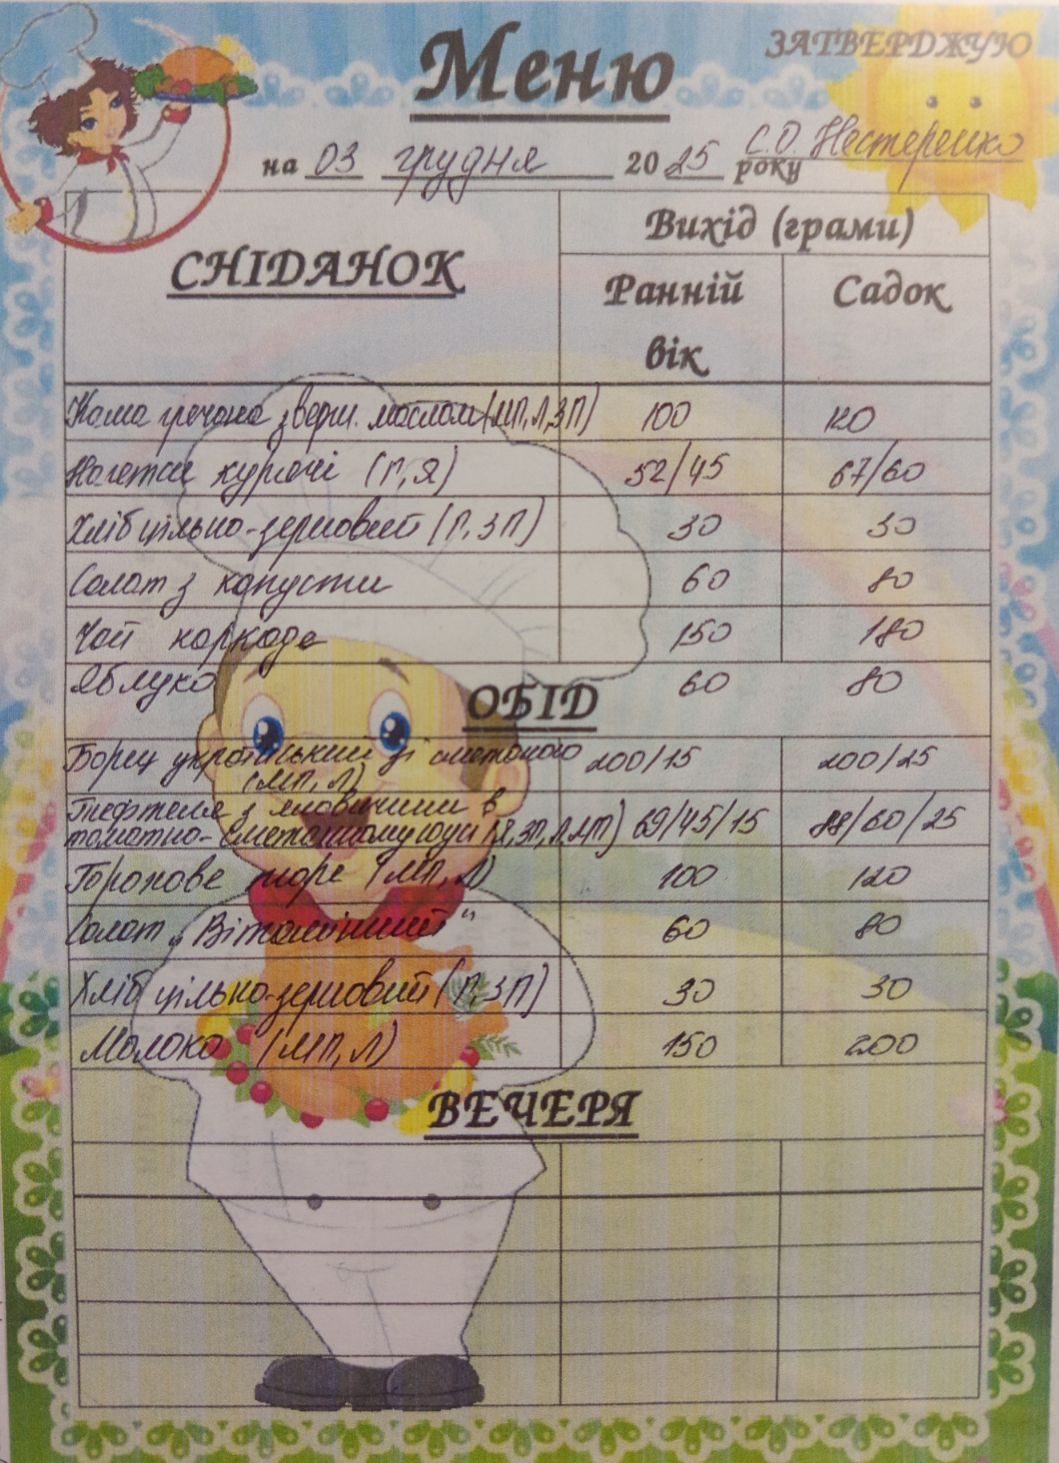 Меню
ЗАТВЕРДЖУЮ
С.О. Нестеренко
на 03 грудня 2025 року
СНІДАНОК
Вихід (грами)
Ранній вік
Садок
Каша гречана з верш. маслом (МП, Л, ЗП) 100 120
Нагетси курячі (Г, Я) 52/45 67/60
Хліб цільно-зерновий (Г, ЗП) 30 30
Салат з капусти 60 80
Чай каркаде 150 180
Яблуко 60 80
ОБІД
Борщ український зі сметаною 200/15 200/25
(МП, Л)
Тефтелі з яловичини в
томатно-сметанному соусі (Я, ЗП, Л, МП) 69/45/15 88/60/25
Горохове пюре (МП, Л) 100 120
Салат „Вітамінний" 60 80
Хліб цільно-зерновий (Г, ЗП) 30 30
Молоко (МП, Л) 150 200
ВЕЧЕРЯ